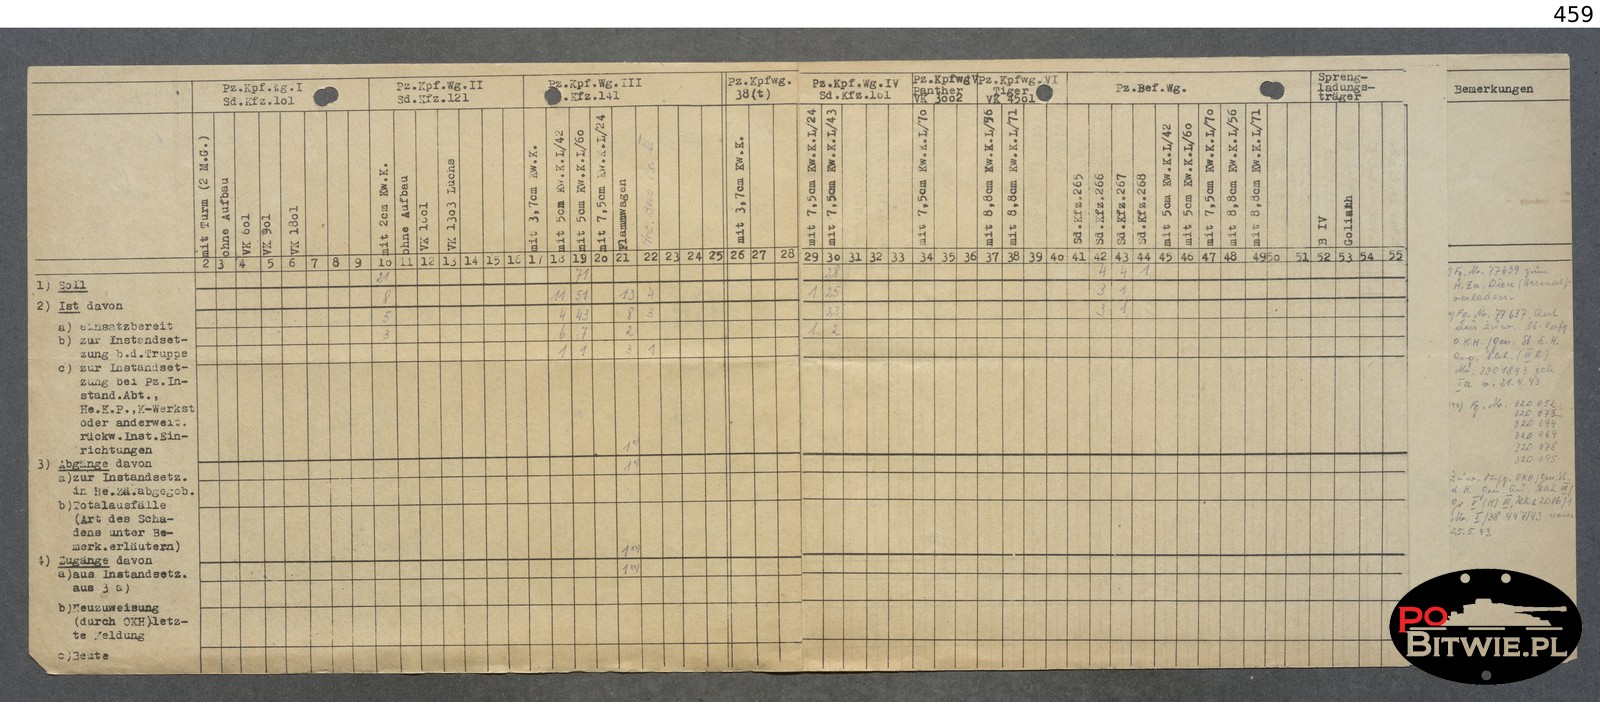 459
Pz.Kpf.Wg.I
Sd.Kfz.101
Pz.Kpf.Wg.II
Sd.Kfz.121
Pz.Kpf.Wg.III
.Kfz.141
Pz.Kpfwg.
38(t)
Pz.Kpf.Wg.IV
Sd.Kfz.161
Pz.KpfwgV
Panther
VK 3002
Pz.Kpfwg.VI
Tiger
VK 4501
Pz.Bef.Wg.
Spreng-
ladungs-
träger
Bemerkungen
mit Turm (2 M.G.)
ohne Aufbau
VK 601
VK 901
VK 1801
mit 2cm Kw.K.
ohne Aufbau
VK 1601
VK 1303 Luchs
mit 3,7cm Kw.K.
mit 5cm Kw.K.L/42
mit 5cm Kw.K.L/60
mit 7,5cm Kw.K.L/24
Flammwagen
mit 3,7cm Kw.K.
mit 7,5cm Kw.K.L/24
mit 7,5cm Kw.K.L/43
mit 7,5cm Kw.K.L/70
mit 8,8cm Kw.K.L/56
mit 8,8cm Kw.K.L/71
Sd.Kfz.265
Sd.Kfz.266
Sd.Kfz.267
Sd.Kfz.268
mit 5cm Kw.K.L/42
mit 5cm Kw.K.L/60
mit 7,5cm Kw.K.L/70
mit 8,8cm Kw.K.L/56
mit 8,8cm Kw.K.L/71
B IV
Goliath
2 3 4 5 6 7 8 9 10 11 12 13 14 15 16 17 18 19 20 21 22 23 24 25 26 27 28 29 30 31 32 33 34 35 36 37 38 39 40 41 42 43 44 45 46 47 48 49 50 51 52 53 54 55
1) Soll 21 71 28 4 4 1
2) Ist davon 8 11 51 13 4 1 25 3 1
a) einsatzbereit 5 4 43 8 3 23 3 1
b) zur Instandset- 3 6 7 2 1 2
zung b.d.Truppe 1 1 3 1
c) zur Instandset-
zung bei Pz.In-
stand.Abt.,
He.K.P.,K-Werkst
oder anderweit.
rückw.Inst.Ein-
richtungen
3) Abgänge davon
a)zur Instandsetz.
in He.Za.abgegob.
b)Totalausfälle
(Art des Scha-
dens unter Be-
merk.erläutern)
4) Zugänge davon
a)aus Instandsetz.
aus 3 a)
b)Neuzuweisung
(durch OKH)letz-
te Meldung
c)Beute
Fg. Nr. 77639 zum
H.Za. Wien (Arsenal)
verladen.
Fg. Nr. 77637
O.K.H./Gen. St. d. H.
Org. Abt. (III)
Ia v. 21.4.43
Fg. Nr. 320 052
320 073
320 094
320 069
320 078
320 095
25.5.43
PO
BITWIE.PL